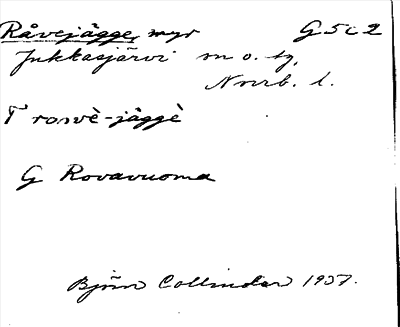 Råvejägge, myr G 5 c 2
Jukkasjärvi m o. tg,
Norrb. l.
T rosvè-jäggè
G Rovavuoma
Björn Collinder 1937.